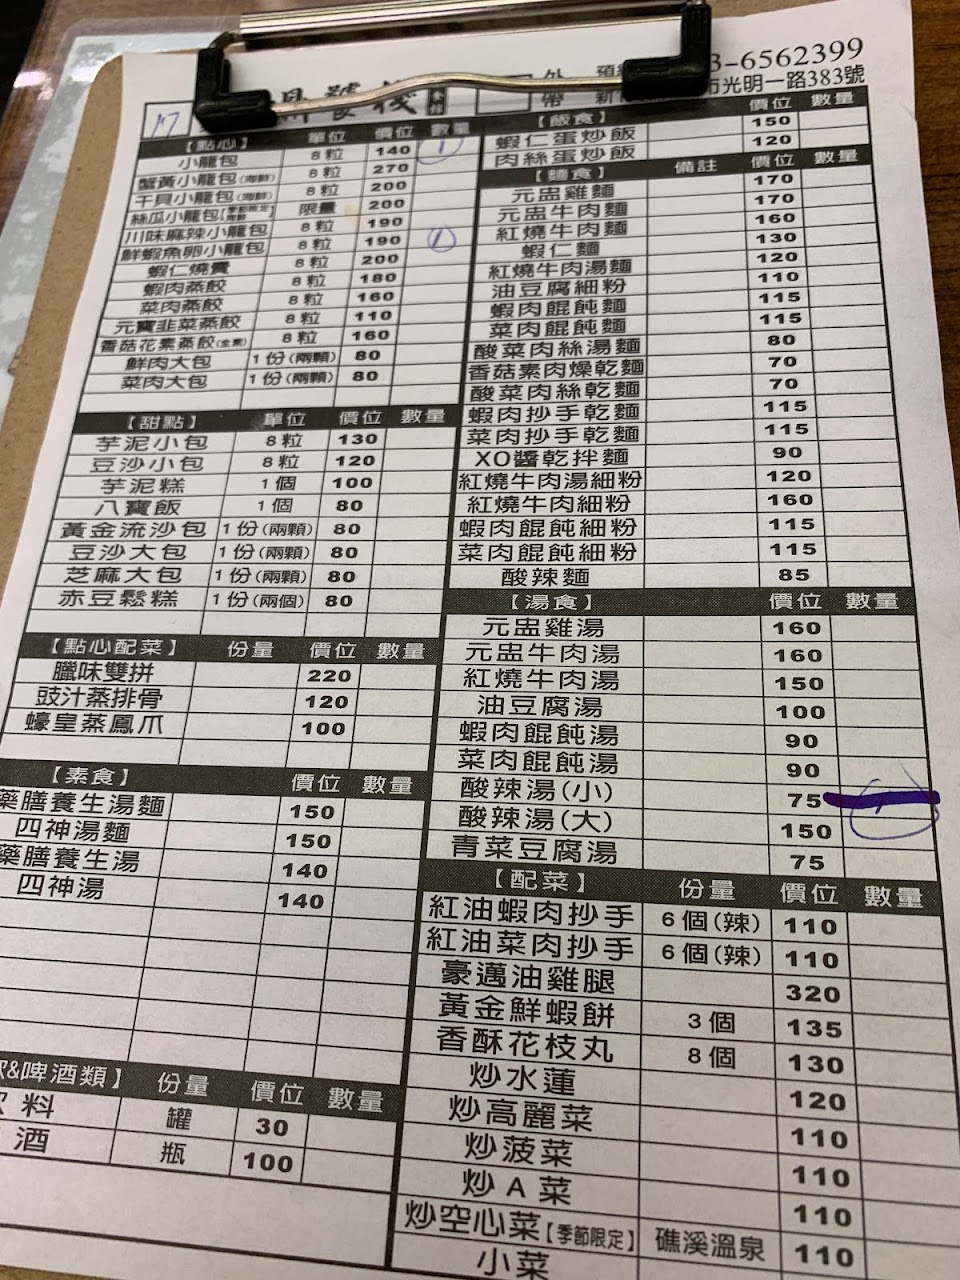 3-6562399
外帶
市光明一路383號
17
【點心】 單位 價位 數量
小籠包 8粒 140 1
蟹黃小籠包(海鮮) 8粒 270
干貝小籠包(海鮮) 8粒 200
絲瓜小籠包【季節限定】 限量 200
川味麻辣小籠包 8粒 190
鮮蝦魚卵小籠包 8粒 190 1
蝦仁燒賣 8粒 200
蝦肉蒸餃 8粒 180
菜肉蒸餃 8粒 160
元寶韭菜蒸餃 8粒 110
香菇花素蒸餃(全素) 8粒 160
鮮肉大包 1份(兩顆) 80
菜肉大包 1份(兩顆) 80
【甜點】 單位 價位 數量
芋泥小包 8粒 130
豆沙小包 8粒 120
芋泥糕 1個 100
八寶飯 1個 80
黃金流沙包 1份(兩顆) 80
豆沙大包 1份(兩顆) 80
芝麻大包 1份(兩顆) 80
赤豆鬆糕 1份(兩個) 80
【點心配菜】 份量 價位 數量
臘味雙拼 220
豉汁蒸排骨 120
蠔皇蒸鳳爪 100
【素食】 價位 數量
藥膳養生湯麵 150
四神湯麵 150
藥膳養生湯 140
四神湯 140
&啤酒類】 份量 價位 數量
料 罐 30
酒 瓶 100
【飯食】 價位 數量
蝦仁蛋炒飯 150
肉絲蛋炒飯 120
【麵食】 備註 價位 數量
元盅雞麵 170
元盅牛肉麵 170
紅燒牛肉麵 160
蝦仁麵 130
紅燒牛肉湯麵 120
油豆腐細粉 110
蝦肉餛飩麵 115
菜肉餛飩麵 115
酸菜肉絲湯麵 80
香菇素肉燥乾麵 70
酸菜肉絲乾麵 70
蝦肉抄手乾麵 115
菜肉抄手乾麵 115
XO醬乾拌麵 90
紅燒牛肉湯細粉 120
紅燒牛肉細粉 160
蝦肉餛飩細粉 115
菜肉餛飩細粉 115
酸辣麵 85
【湯食】 價位 數量
元盅雞湯 160
元盅牛肉湯 160
紅燒牛肉湯 150
油豆腐湯 100
蝦肉餛飩湯 90
菜肉餛飩湯 90
酸辣湯(小) 75
酸辣湯(大) 150
青菜豆腐湯 75
【配菜】 份量 價位 數量
紅油蝦肉抄手 6個(辣) 110
紅油菜肉抄手 6個(辣) 110
豪邁油雞腿 320
黃金鮮蝦餅 3個 135
香酥花枝丸 8個 130
炒水蓮 120
炒高麗菜 110
炒菠菜 110
炒A菜 110
炒空心菜【季節限定】 礁溪溫泉 110
小菜